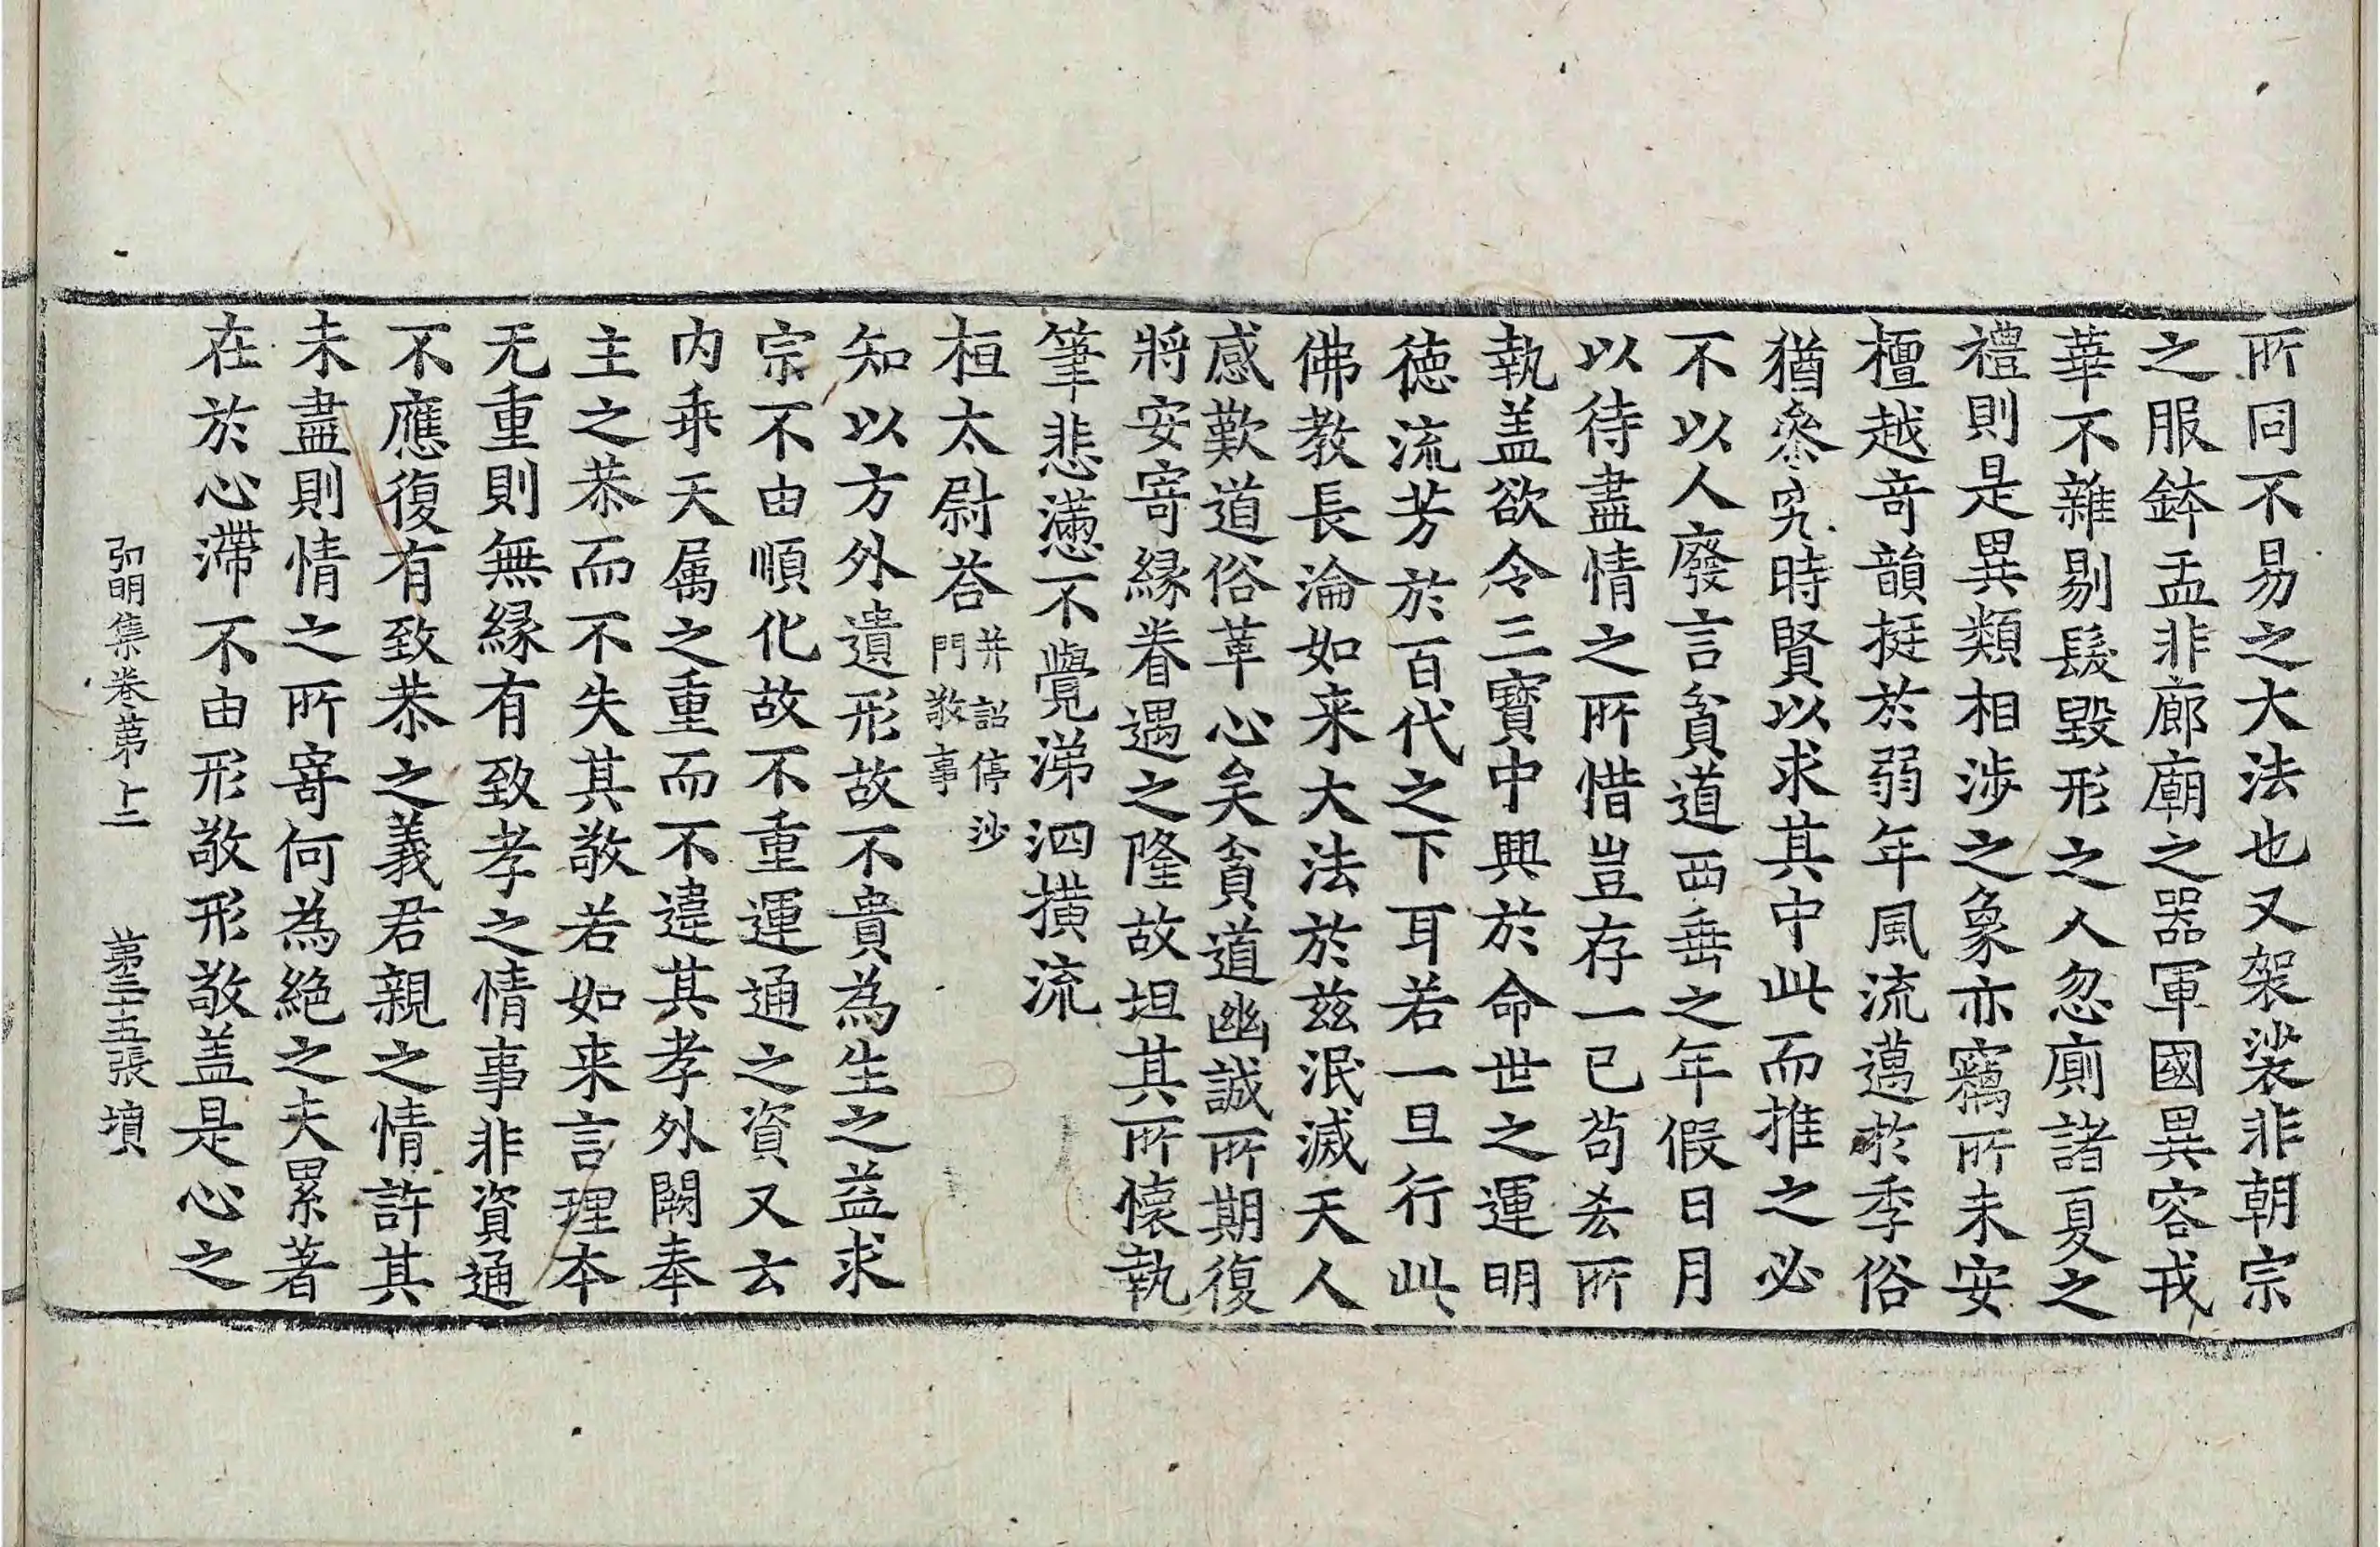 所同不易之大法也又袈裟非朝宗
之服鉢盂非廊廟之器軍國異容戎
華不雜剔髮毀形之人忽廁諸夏之
禮則是異類相渉之象亦竊所未安
檀越竒韻挺於弱年風流邁於季俗
猶叅究時賢以求其中此而推之必
不以人廢言貧道西垂之年假日月
以待盡情之所惜豈存一已苟𠫤所
執盖欲令三寶中興於命世之運明
徳流芳於百代之下耳若一旦行此
佛教長淪如来大法於兹泯滅天人
感歎道俗革心矣貧道幽誠所期復
將安寄縁眷遇之隆故坦其所懐執
筆悲懣不覺涕泗横流
桓太尉荅并詔停沙門敬事
知以方外遺形故不貴為生之益求
宗不由順化故不重運通之資又云
内乖天属之重而不違其孝外闕奉
主之恭而不失其敬若如来言理本
无重則無縁有致孝之情事非資通
不應復有致恭之義君親之情許其
未盡則情之所寄何為絶之夫累著
在於心滯不由形敬形敬盖是心之
弘明集卷第十二 第三十五張 墳